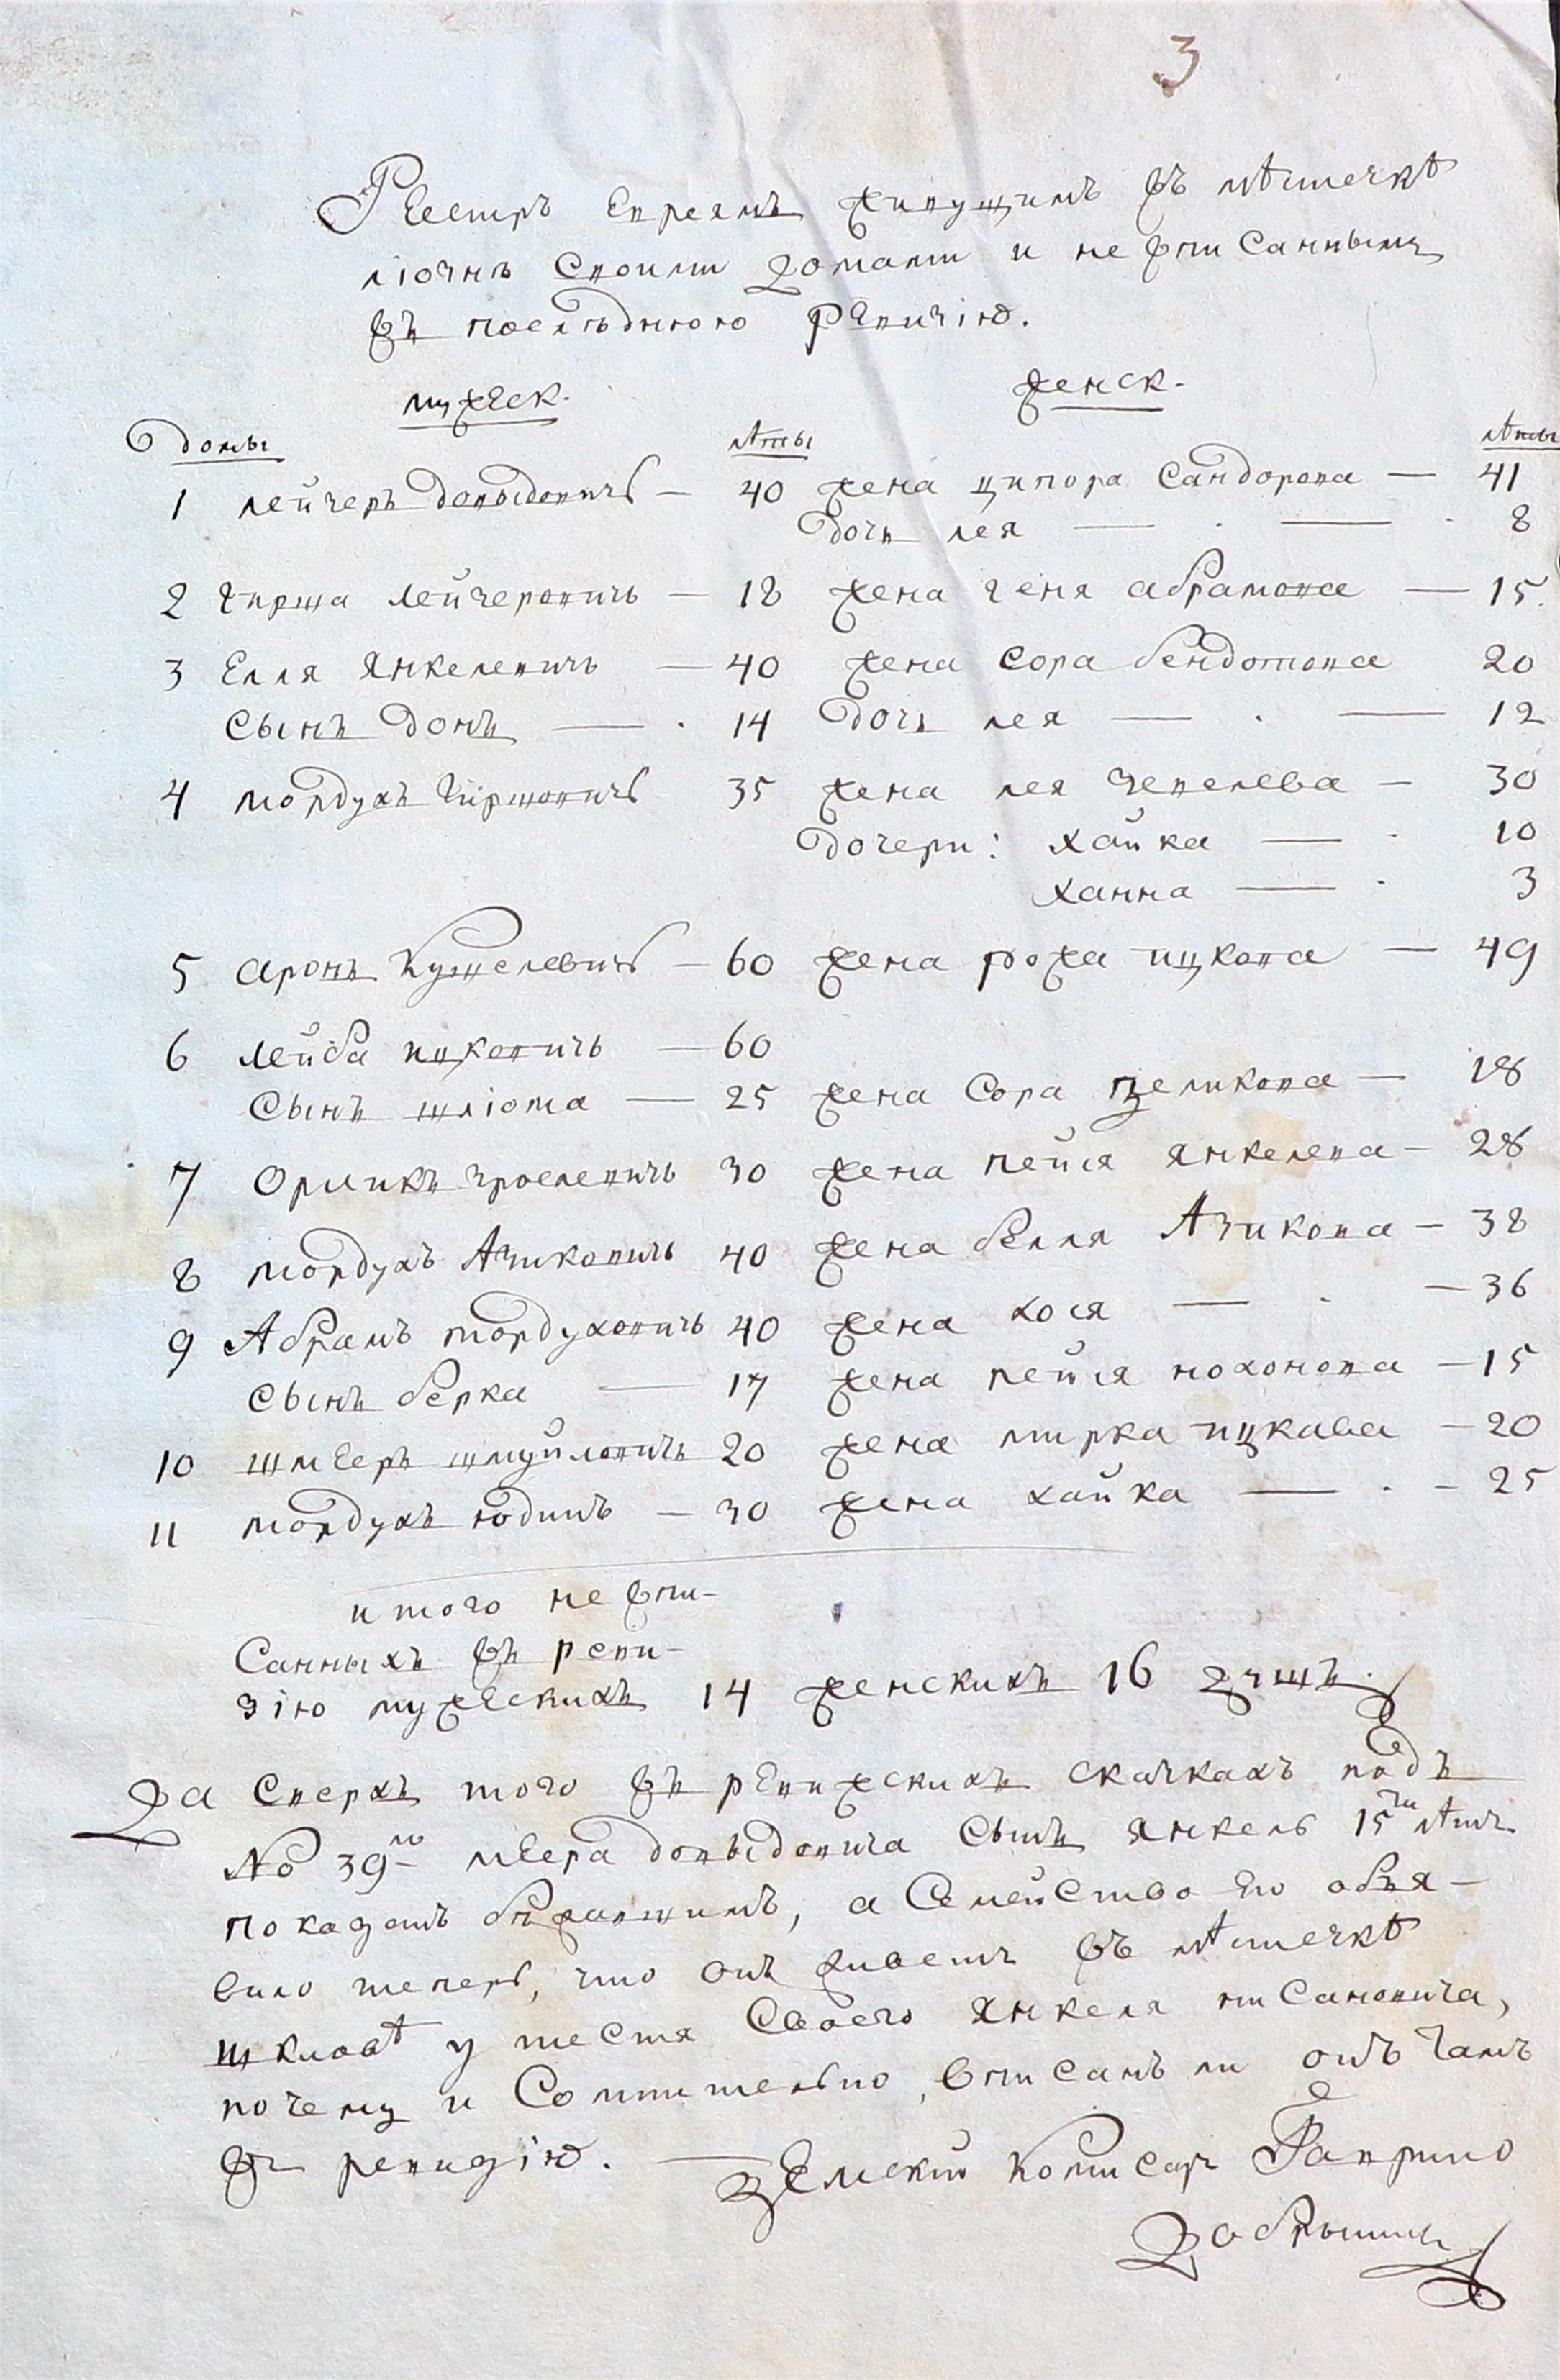 3
Реестръ евреямъ живущимъ въ мѣстечкѣ
ліознѣ своими домами и не вписаннымъ
въ послѣднюю ревизію.
мужеск. женск.
домы лѣты лѣты
1 лейзеръ довыдовичъ — 40 жена ципора сандорова — 41
дочь лея — . — . 8
2 гирша лейзеровичъ — 18 жена геня абрамова — 15.
3 Елля янкелевичъ — 40 жена сора бендетова 20
сынъ донъ — . 14 дочь лея — . — 12
4 мордухъ гиршовичъ 35 жена лея зевелева — 30
дочери: хайка — . 10
ханна — . 3
5 аронъ кушелевичъ — 60 жена рохa ицкова — 49
6 лейба ицковичъ — 60
сынъ шліома — 25 жена сора зеликова — 18
7 Орликъ зроелевичъ 30 жена пейся янкелева — 28
8 мордухъ Азиковичъ 40 жена белля Азикова — 38
9 Абрамъ мордуховичъ 40 жена хося — . — 36
сынъ берка — 17 жена пейся нохомова — 15
10 шмееръ шмуйловичъ 20 жена мирка ицкава — 20
11 мордухъ юдинъ — 30 жена хайка — . — 25
итого не впи-
санныхъ въ реви-
зію мужескихъ 14 женскихъ 16 душъ.
Да сверхъ того въ ревижскихъ сказкахъ подъ
No 39мъ меера довыдовича сынъ янкель 15ти лѣтъ
показанъ бѣжавшимъ, а семейство его объя-
вило теперь, что онъ живетъ въ мѣстечкѣ
шкловѣ у тестя своего янкеля нисановича,
почему и сомнительно, вписанъ ли онъ тамъ
въ ревизію. — земскій комисаръ Гаврило
Добрынинъ